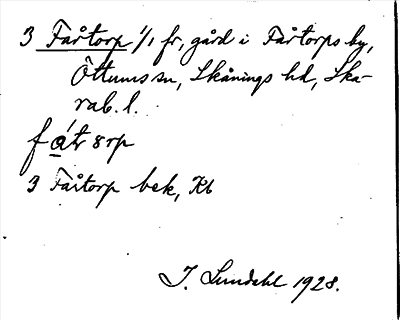 3 Fåtorp 1/1 fr, gård i Fåtorps by,
Öttums sn, Skånings hd, Ska-
rab. l.
3 Fåtorp bek, Kb
I. Lundahl 1928.